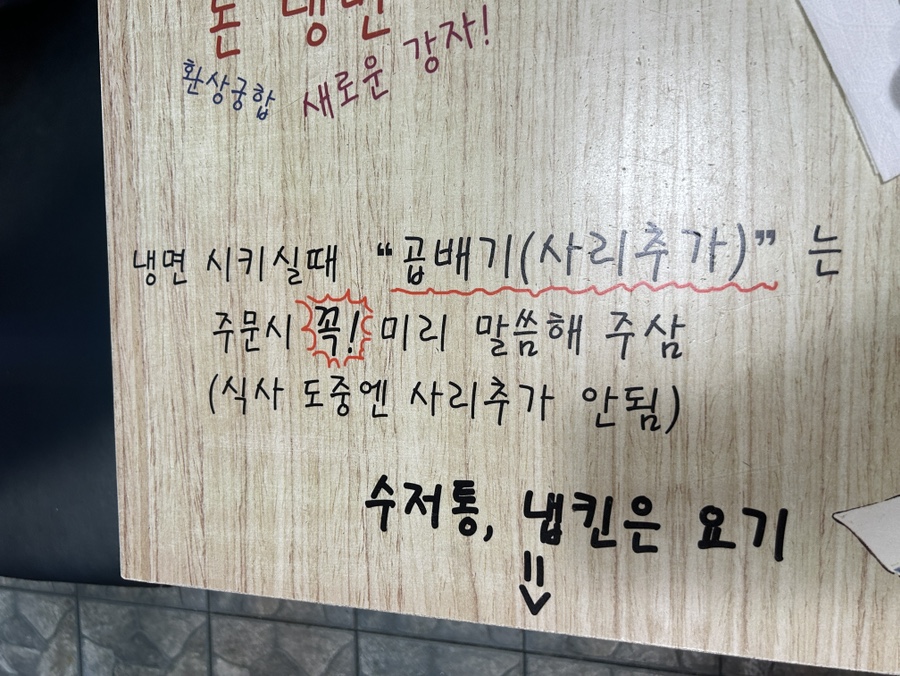 돈 냉면
환상궁합 새로운 강자!
냉면 시키실때 “곱배기(사리추가)” 는
주문시 꼭! 미리 말씀해 주삼
(식사 도중엔 사리추가 안됨)
수저통, 냅킨은 요기